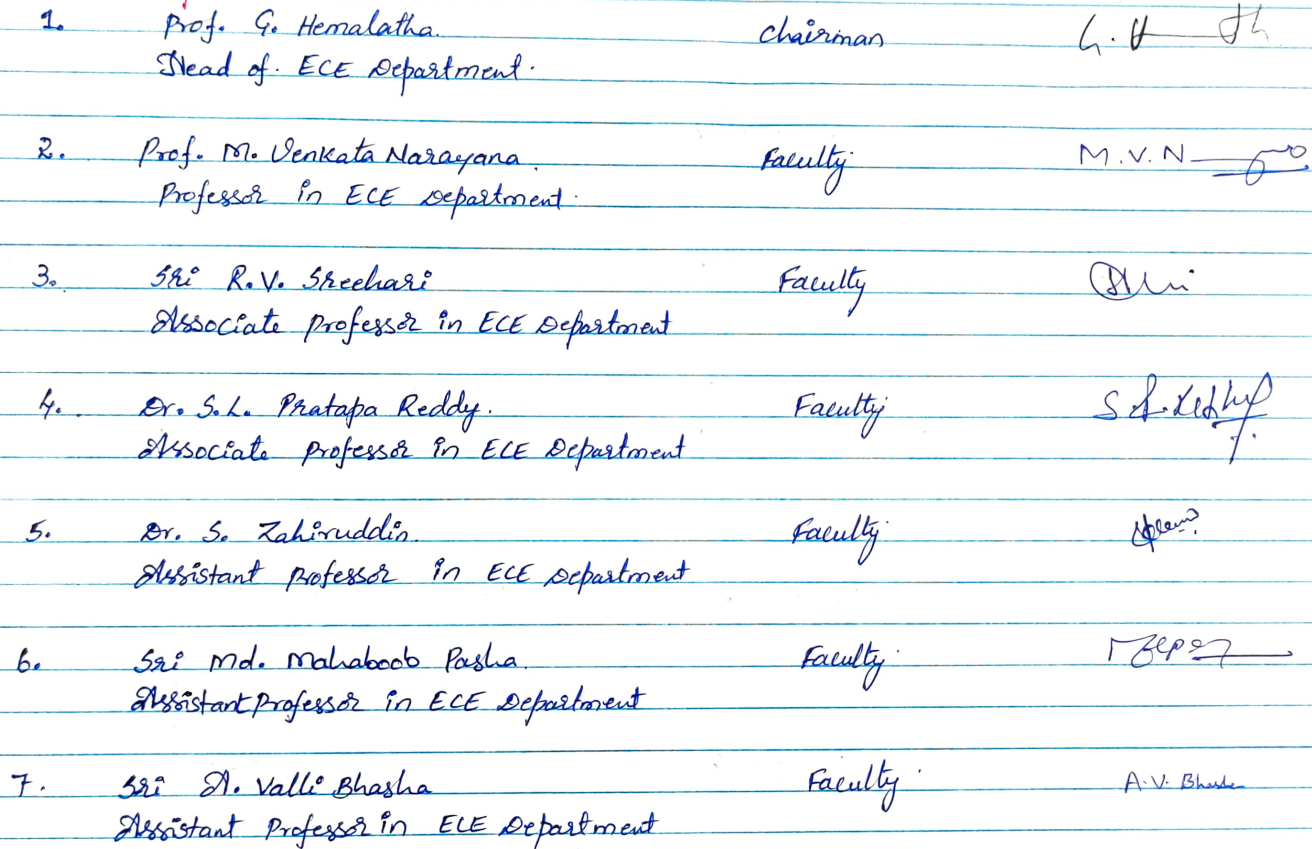 1. Prof. G. Hemalatha. Chairman G. H
Head of. ECE Department.
2. Prof. M. Venkata Narayana. Faculty M.V.N
Professor in ECE Department.
3. Sri R.V. Sreehari Faculty
Associate Professor in ECE Department
4. Dr. S.L. Pratapa Reddy. Faculty
Associate Professor in ECE Department
5. Dr. S. Zahiruddin. Faculty
Assistant Professor in ECE Department
6. Sri Md. Mahaboob Pasha. Faculty
Assistant Professor in ECE Department
7. Sri A. Valli Bhasha Faculty A.V. Bhasha
Assistant Professor in ECE Department